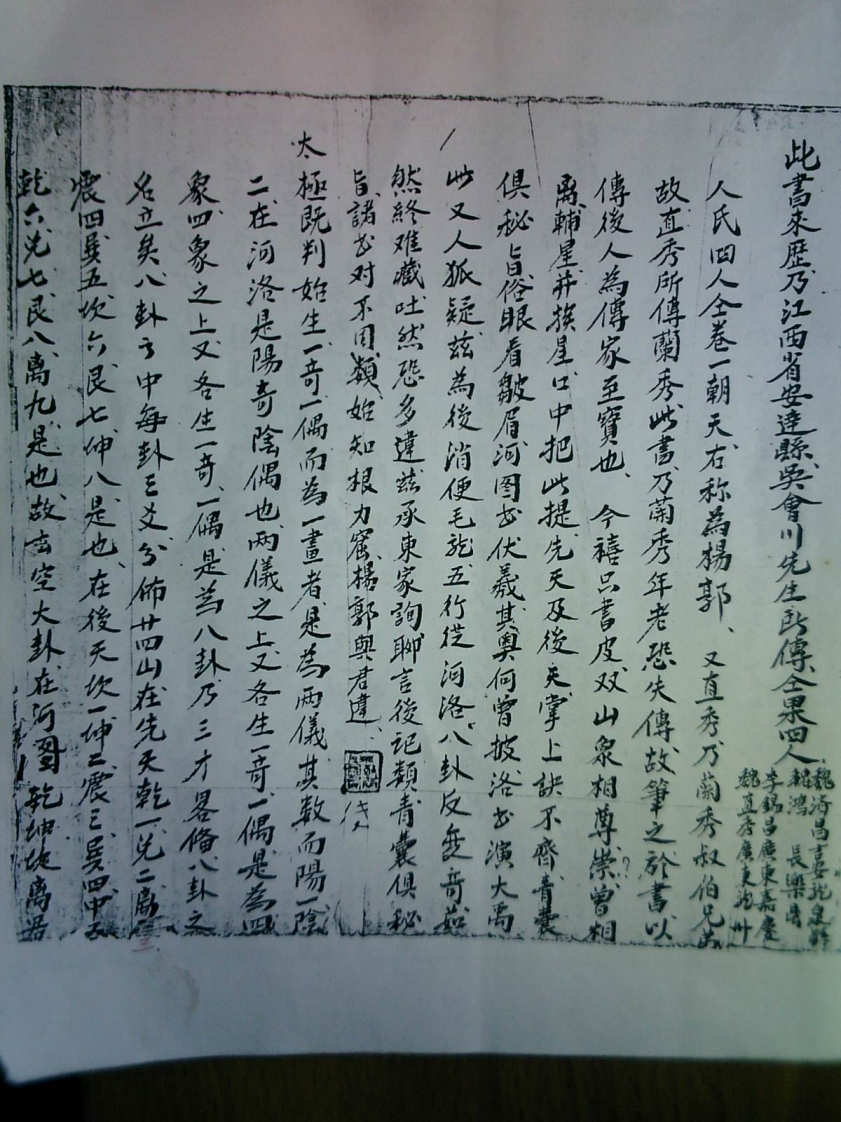 此書来歷乃江西省安逹縣吳會川先生所傳仝票四人
魏済昌
魏鴻 長樂
李錫昌廣東嘉慶
魏直秀廣東
人氏四人仝卷一朝天右称為楊郭、又直秀乃蘭秀叔伯兄弟
故直秀所傳蘭秀此書乃蘭秀年老恐失傳故筆之於書以
傳後人為傳家至寶也、今禧只書皮双山衆相尊崇曾相
离輔星并挨星口中把此提先天及後天掌上訣不齊青囊
俱秘旨俗眼看皺眉河图出伏羲其奧何曾披洛出演大禹
此又人狐疑茲為後消便毛龍五行從河洛八卦反無奇
然終难藏吐然恐多違茲承東家詢聊言後記類青囊俱秘
旨諸出对不同類始知根力窓楊郭與君違、
太極既判始生一奇一偶而為一畫者是為兩儀其数而陽一陰
二在河洛是陽奇陰偶也两儀之上又各生一奇一偶是為四
象四象之上又各生一奇一偶是為八卦乃三才畧備八卦之
名立矣八卦之中每卦三爻分佈廿四山在先天乾一兌二离
震四巽五坎六艮七坤八是也在後天坎一坤二震三巽四中五
乾六兌七艮八离九是也故玄空大卦在河圖乾坤坎离居